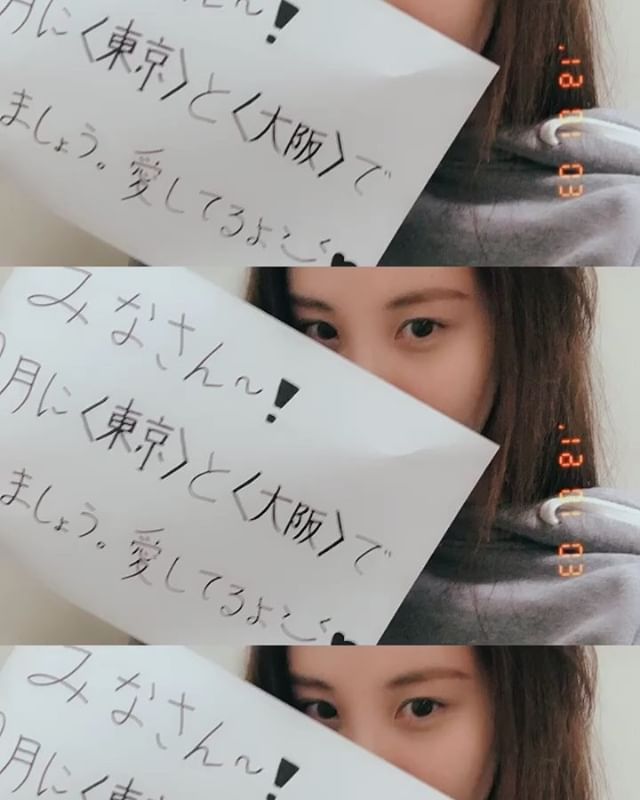 月に〈東京〉と〈大阪〉で
ましょう。愛してるよ
みなさん~!
月に〈東京〉と〈大阪〉で
ましょう。愛してるよ
みなさん~!
月に